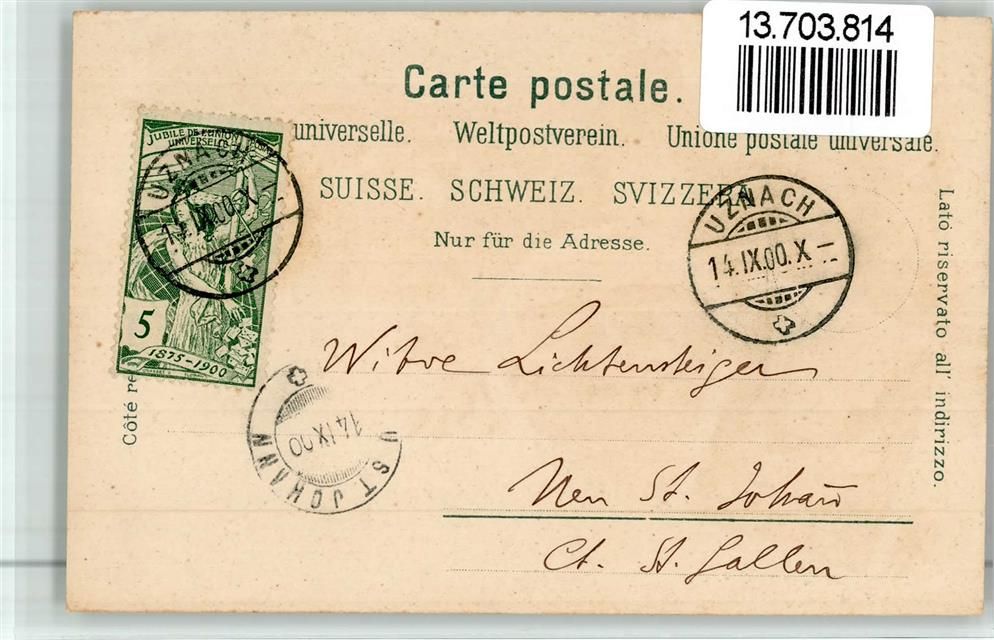 13.703.814
Carte postale.
universelle. Weltpostverein. Unione postale universale.
SUISSE. SCHWEIZ. SVIZZERA
Nur für die Adresse.
JUBILÉ DE L'UNION POSTALE
UNIVERSELLE
5
1875-1900
UZNACH
14.IX.00.X-
UZNACH
14.IX.00.X-
Côté re
Lato riservato all' indirizzo.
Witwe Lichtensteiger
ST JOHANN
14 IX 00
Neu St. Johann
Ct. St. Gallen